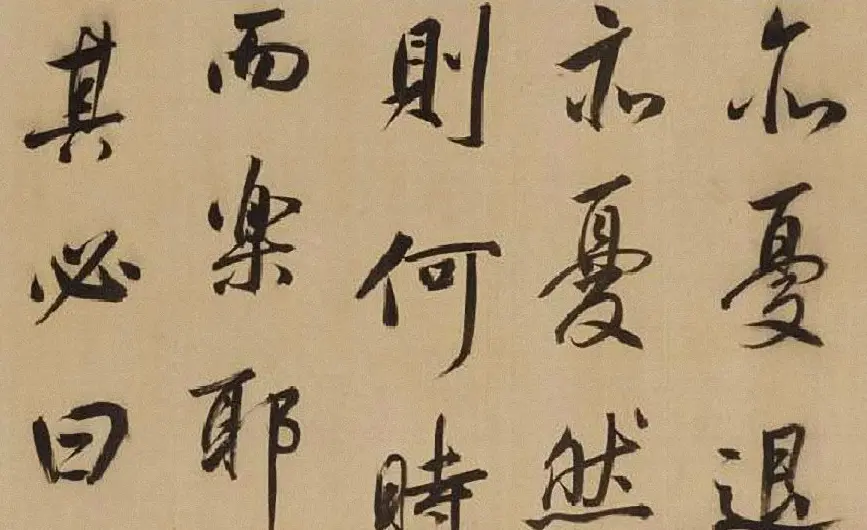 亦憂退
亦憂然
則何時
而楽耶
其必曰